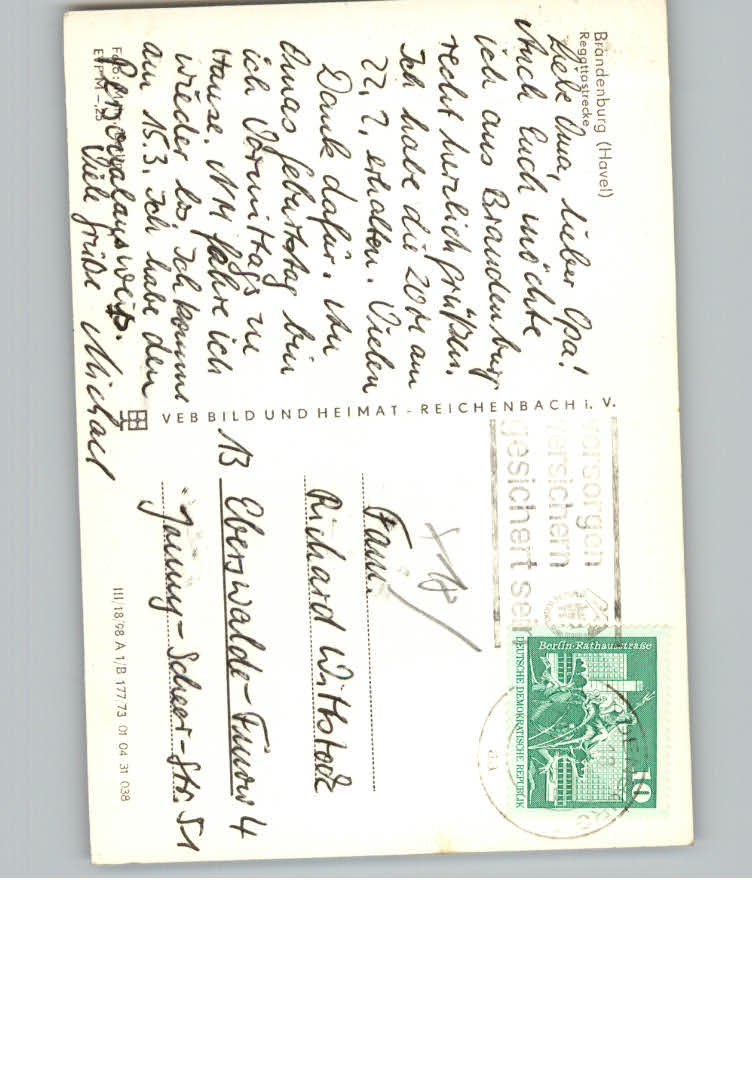 Brandenburg (Havel)
Regattastrecke
Liebe Oma, lieber Opa!
Auch Euch möchte
ich aus Brandenburg
recht herzlich grüßen.
Ich habe die 20 M am
22. 2. erhalten. Vielen
Dank dafür. Zu
Omas Geburtstag bin
ich Vormittags zu
Hause. fahre ich
wieder los. Ich komme
am 15.3. Ich habe den
Personalausweis.
Viele Grüße Michael
Foto:
EVP M -,25
VEB BILD UND HEIMAT - REICHENBACH i. V.
vorsorgen
versichern
gesichert sein
Berlin-Rathausstraße
DEUTSCHE DEMOKRATISCHE REPUBLIK
10
Fam.
Richard Wittstock
13 Eberswalde-Finow 4
Jonny-Scheer-Str. 51
III/18/98 A 1/B 177 73 01 04 31 038